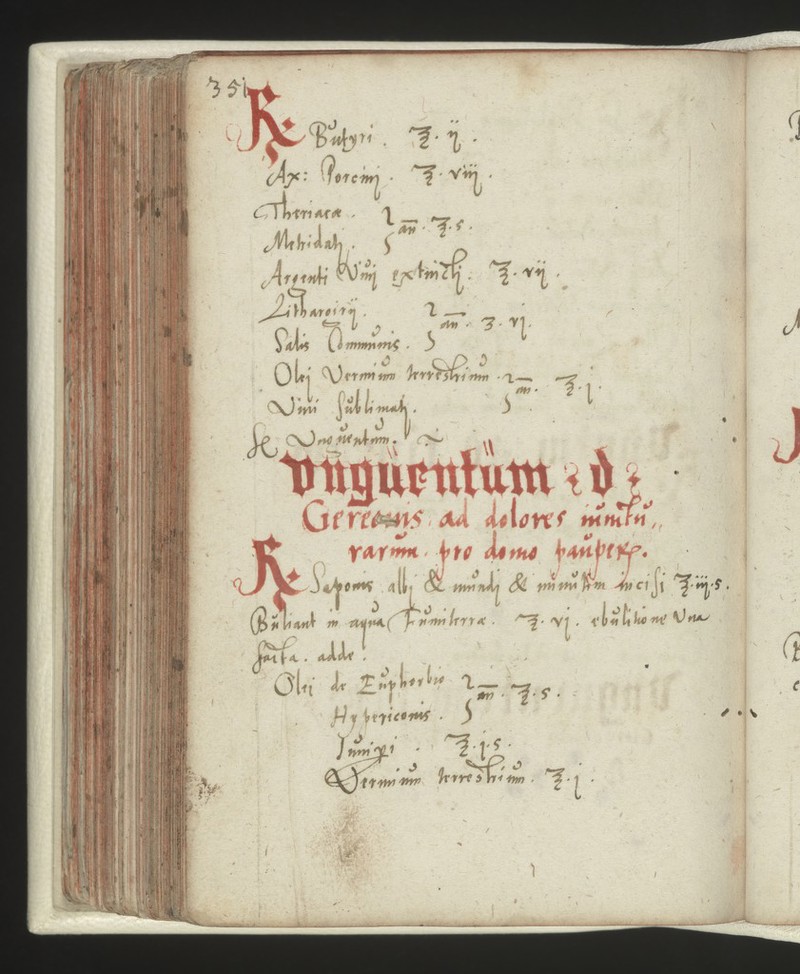 351
℞ Butyri. ℥. ij.
Ax: Porcinj. ℥. viij.
Theriacæ.
Metridatj. an. ℥. s.
Argenti Viui extinctj. ℥. vij.
Lithargirij.
Salis Communis. an. ʒ. vj.
Olej Vermium terrestrium.
Vini sublimatj. an. ℥. j.
Unguentum.
Vngüentüm d
Gereonis ad dolores iunctu,,
rarum pro domo pauper.
℞ Saponis albj & mundj & minutim incisi ℥. iij. s.
Buliant in aqua Fumiterræ. ℥. vj. ebulitione Una
facta. adde.
Olej de Euphorbio
Hypericonis. an. ℥. s.
Juniperi. ℥. j. s.
Vermium terrestrium. ℥. j.